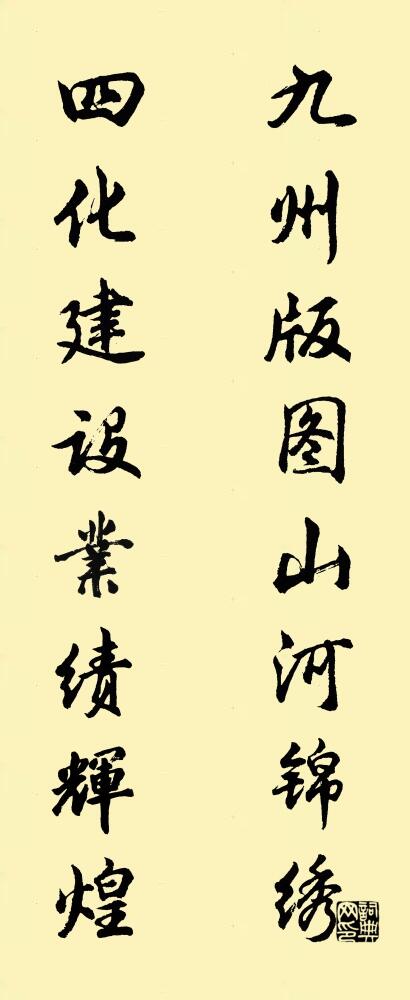 九州版图山河锦绣
四化建设業绩輝煌
詞典网印